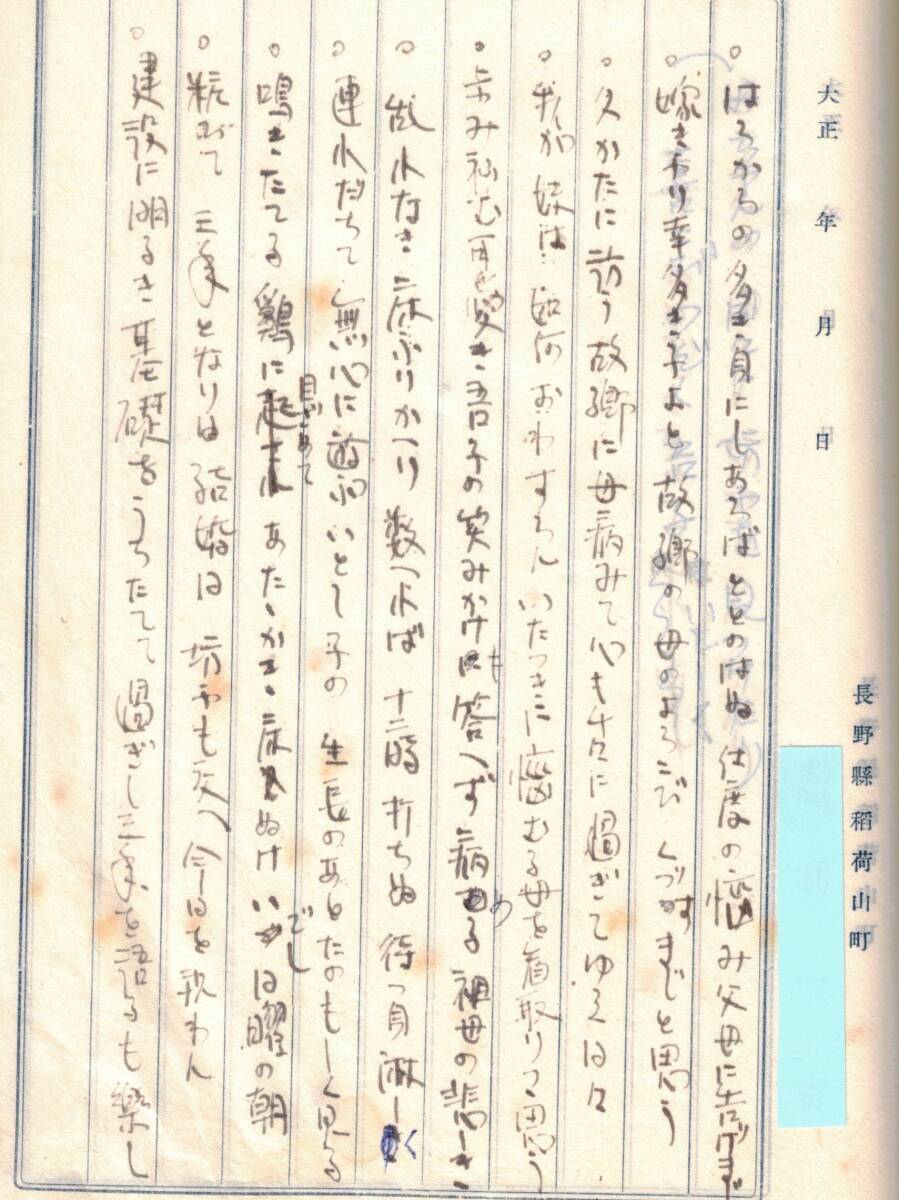 大正 年 月 日
長野縣稲荷山町
。はらからの多き身にしあらば ととのはぬ 仕度の悩み父母に告げまじ
。嫁きより幸多き子よと故郷の母のよろこび くづすまじと思う
。久かたに訪う故郷に母病みて心も に過ぎてゆく日々
。我が妹は 如何おわすらん いたつきに悩む母を看取りつつ思う
。 吾子の笑みかけにも答へず 病める 祖母の悲しき
。 なき床ふりかへり数へれば 十二時打ちぬ 待つ身淋しく
。連れだちて無心に遊ぶいとし子の 生長のあとたのもしく見る
。鳴きたてる鶏に目ざめて あたゝかき床をぬけいでし日曜の朝
。 三年となりは結婚は 坊やも交へ今日を祝わん
。建設に明るき基礎をうちたてて 過ぎし三年を語るも楽し